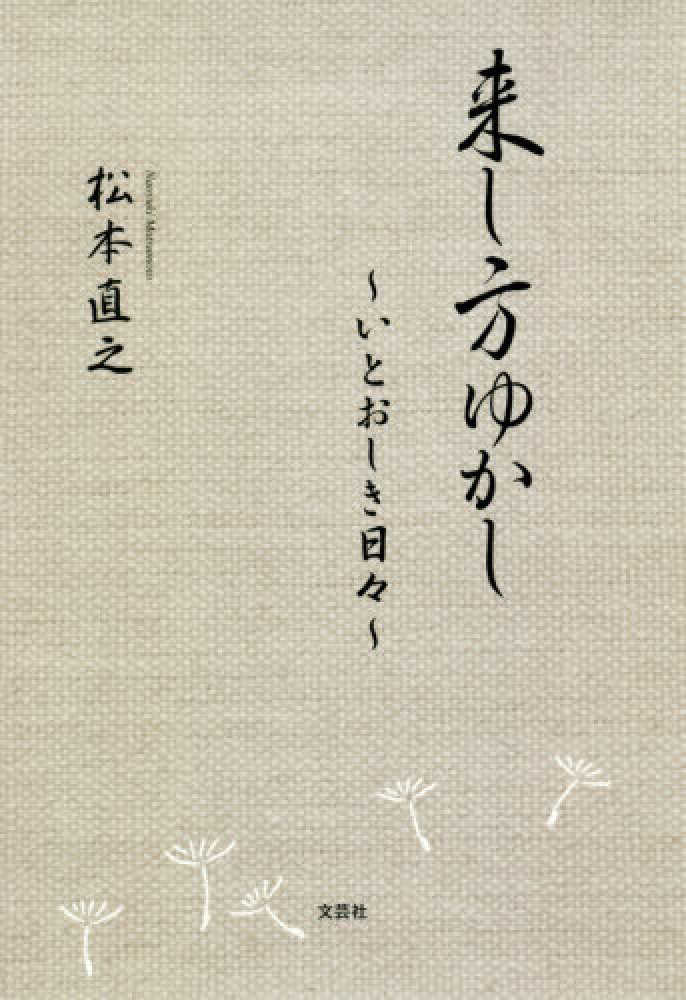 来し方ゆかし
～いとおしき日々～
松本直之
文芸社